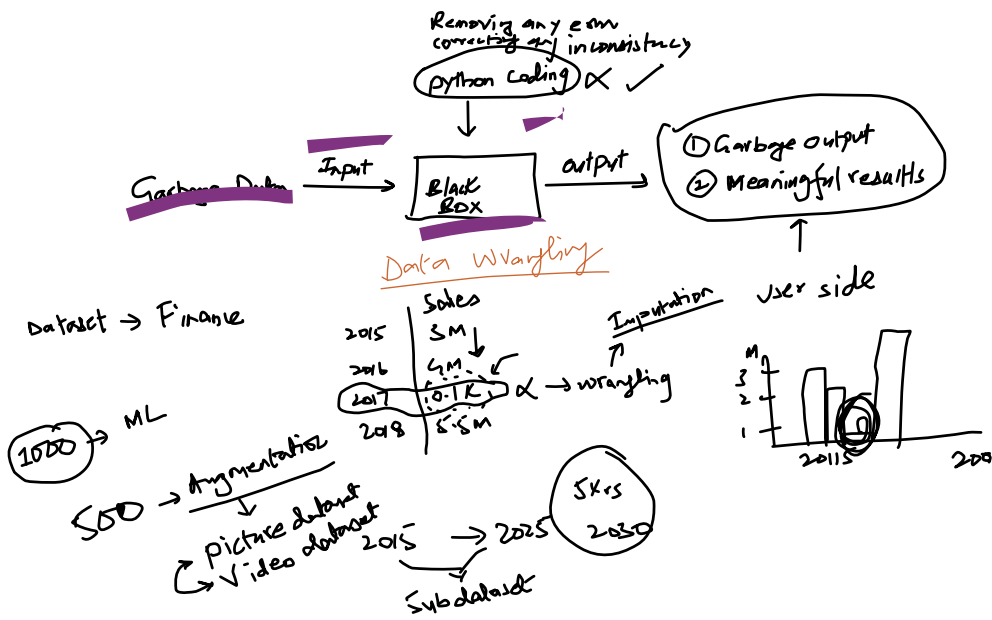 Removing any error
correcting any inconsistency
python coding
Input
output
Garbage Data
Black
BOX
① Garbage output
② Meaningful results
Data Wrangling
user side
Dataset → Finance
Sales
2015 3M
2016 4M
2017 0.1K
2018 5.5M
→ wrangling
Imputation
M
3
2
1
20115
200
1000 → ML
500 → Augmentation
picture dataset
video dataset
2015 → 2025
5Yrs
2030
Subdataset